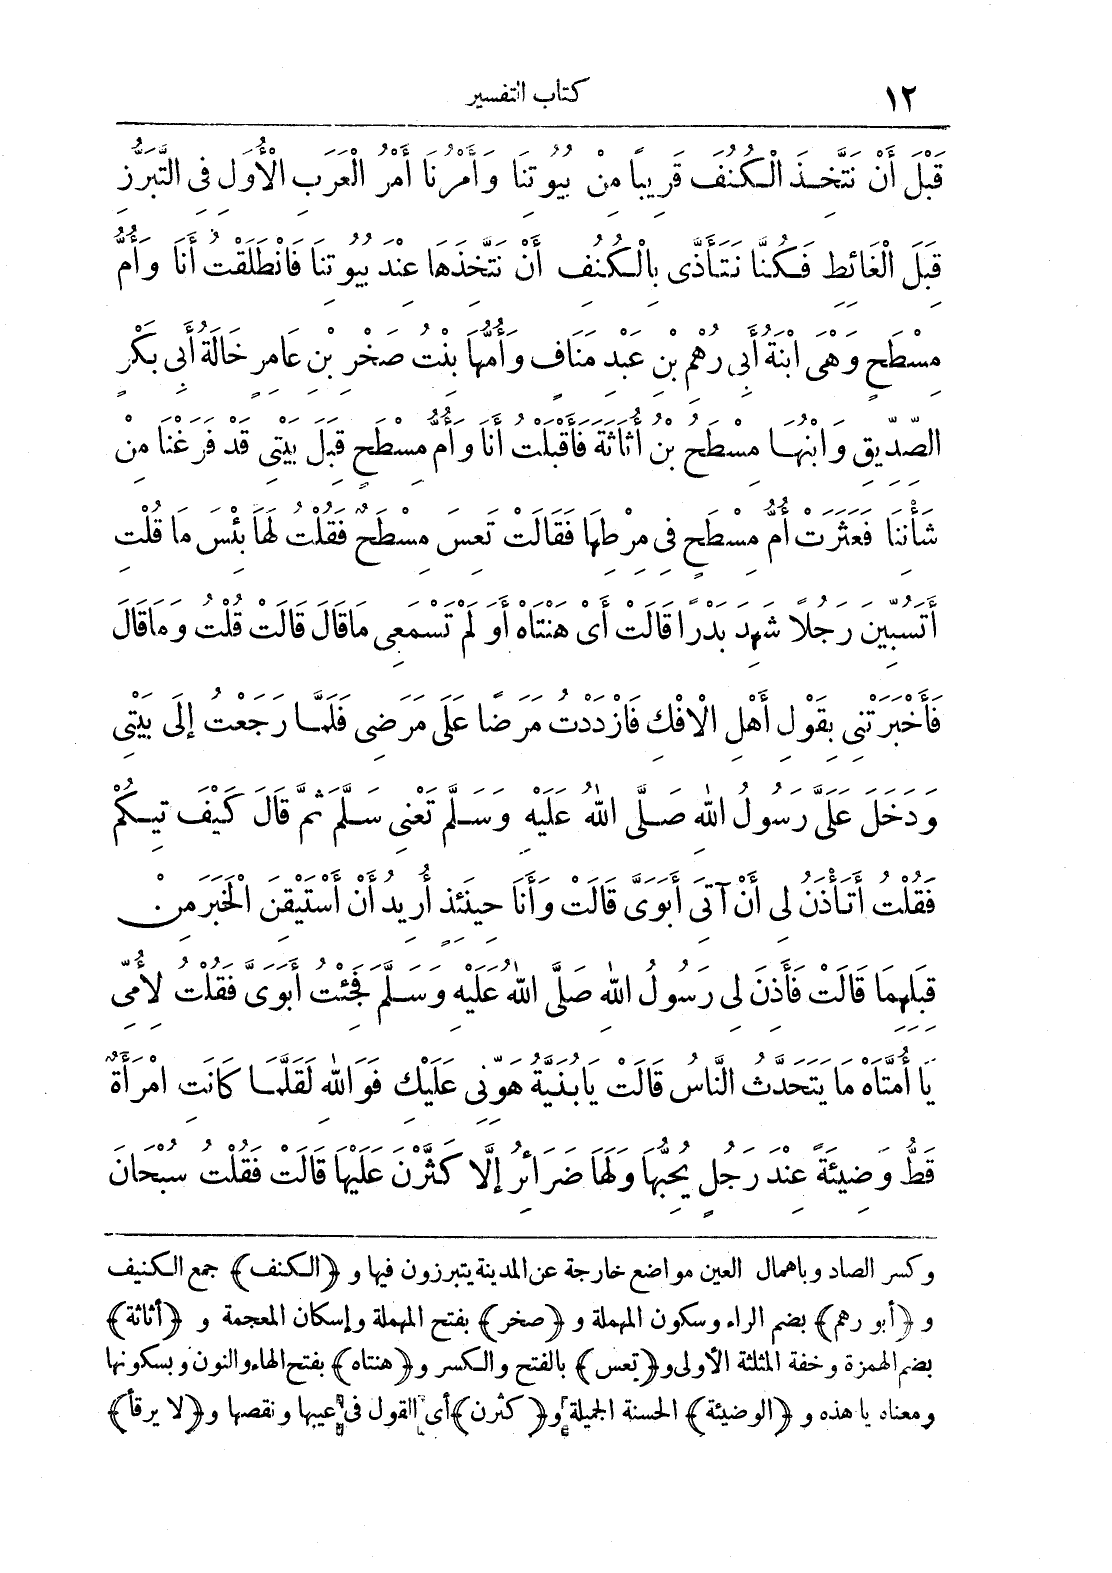 ١٢ كتاب التفسير
قَبْلَ أَنْ نَتَّخِذَ الْكُنُفَ قَرِيبًا مِنْ بُيُوتِنَا وَأَمْرُنَا أَمْرُ الْعَرَبِ الْأُوَلِ فِى التَّبَرُّزِ
قِبَلَ الْغَائِطِ فَكُنَّا نَتَأَذَّى بِالْكُنُفِ أَنْ نَتَّخِذَهَا عِنْدَ بُيُوتِنَا فَانْطَلَقْتُ أَنَا وَأُمُّ
مِسْطَحٍ وَهْىَ ابْنَةُ أَبِى رُهْمِ بْنِ عَبْدِ مَنَافٍ وَأُمُّهَا بِنْتُ صَخْرِ بْنِ عَامِرٍ خَالَةُ أَبِى بَكْرٍ
الصِّدِّيقِ وَابْنُهَا مِسْطَحُ بْنُ أُثَاثَةَ فَأَقْبَلْتُ أَنَا وَأُمُّ مِسْطَحٍ قِبَلَ بَيْتِى قَدْ فَرَغْنَا مِنْ
شَأْنِنَا فَعَثَرَتْ أُمُّ مِسْطَحٍ فِى مِرْطِهَا فَقَالَتْ تَعِسَ مِسْطَحٌ فَقُلْتُ لَهَا بِئْسَ مَا قُلْتِ
أَتَسُبِّينَ رَجُلًا شَهِدَ بَدْرًا قَالَتْ أَىْ هَنْتَاهْ أَوَ لَمْ تَسْمَعِى مَا قَالَ قَالَتْ قُلْتُ وَمَا قَالَ
فَأَخْبَرَتْنِى بِقَوْلِ أَهْلِ الْإِفْكِ فَازْدَدْتُ مَرَضًا عَلَى مَرَضِى فَلَمَّا رَجَعْتُ إِلَى بَيْتِى
وَدَخَلَ عَلَىَّ رَسُولُ اللهِ صَلَّى اللهُ عَلَيْهِ وَسَلَّمَ تَعْنِى سَلَّمَ ثُمَّ قَالَ كَيْفَ تِيكُمْ
فَقُلْتُ أَتَأْذَنُ لِى أَنْ آتِىَ أَبَوَىَّ قَالَتْ وَأَنَا حِينَئِذٍ أُرِيدُ أَنْ أَسْتَيْقِنَ الْخَبَرَ مِنْ
قِبَلِهِمَا قَالَتْ فَأَذِنَ لِى رَسُولُ اللهِ صَلَّى اللهُ عَلَيْهِ وَسَلَّمَ فَجِئْتُ أَبَوَىَّ فَقُلْتُ لِأُمِّى
يَا أُمَّتَاهْ مَا يَتَحَدَّثُ النَّاسُ قَالَتْ يَا بُنَيَّةُ هَوِّنِى عَلَيْكِ فَوَاللهِ لَقَلَّمَا كَانَتِ امْرَأَةٌ
قَطُّ وَضِيئَةً عِنْدَ رَجُلٍ يُحِبُّهَا وَلَهَا ضَرَائِرُ إِلَّا كَثَّرْنَ عَلَيْهَا قَالَتْ فَقُلْتُ سُبْحَانَ
وكسر الصاد وباهمال العين مواضع خارجة عن المدينة يتبرزون فيها و ﴿الكنف﴾ جمع الكنيف
و ﴿أبو رهم﴾ بضم الراء وسكون المهملة و ﴿صخر﴾ بفتح المهملة وإسكان المعجمة و ﴿أثاثة﴾
بضم الهمزة وخفة المثلثة الأولى و ﴿تعس﴾ بالفتح والكسر و ﴿هنتاه﴾ بفتح الهاء والنون وبسكونها
ومعناه يا هذه و ﴿الوضيئة﴾ الحسنة الجميلة و ﴿كثرن﴾ أى القول فى عيبها ونقصها و ﴿لا يرقأ﴾